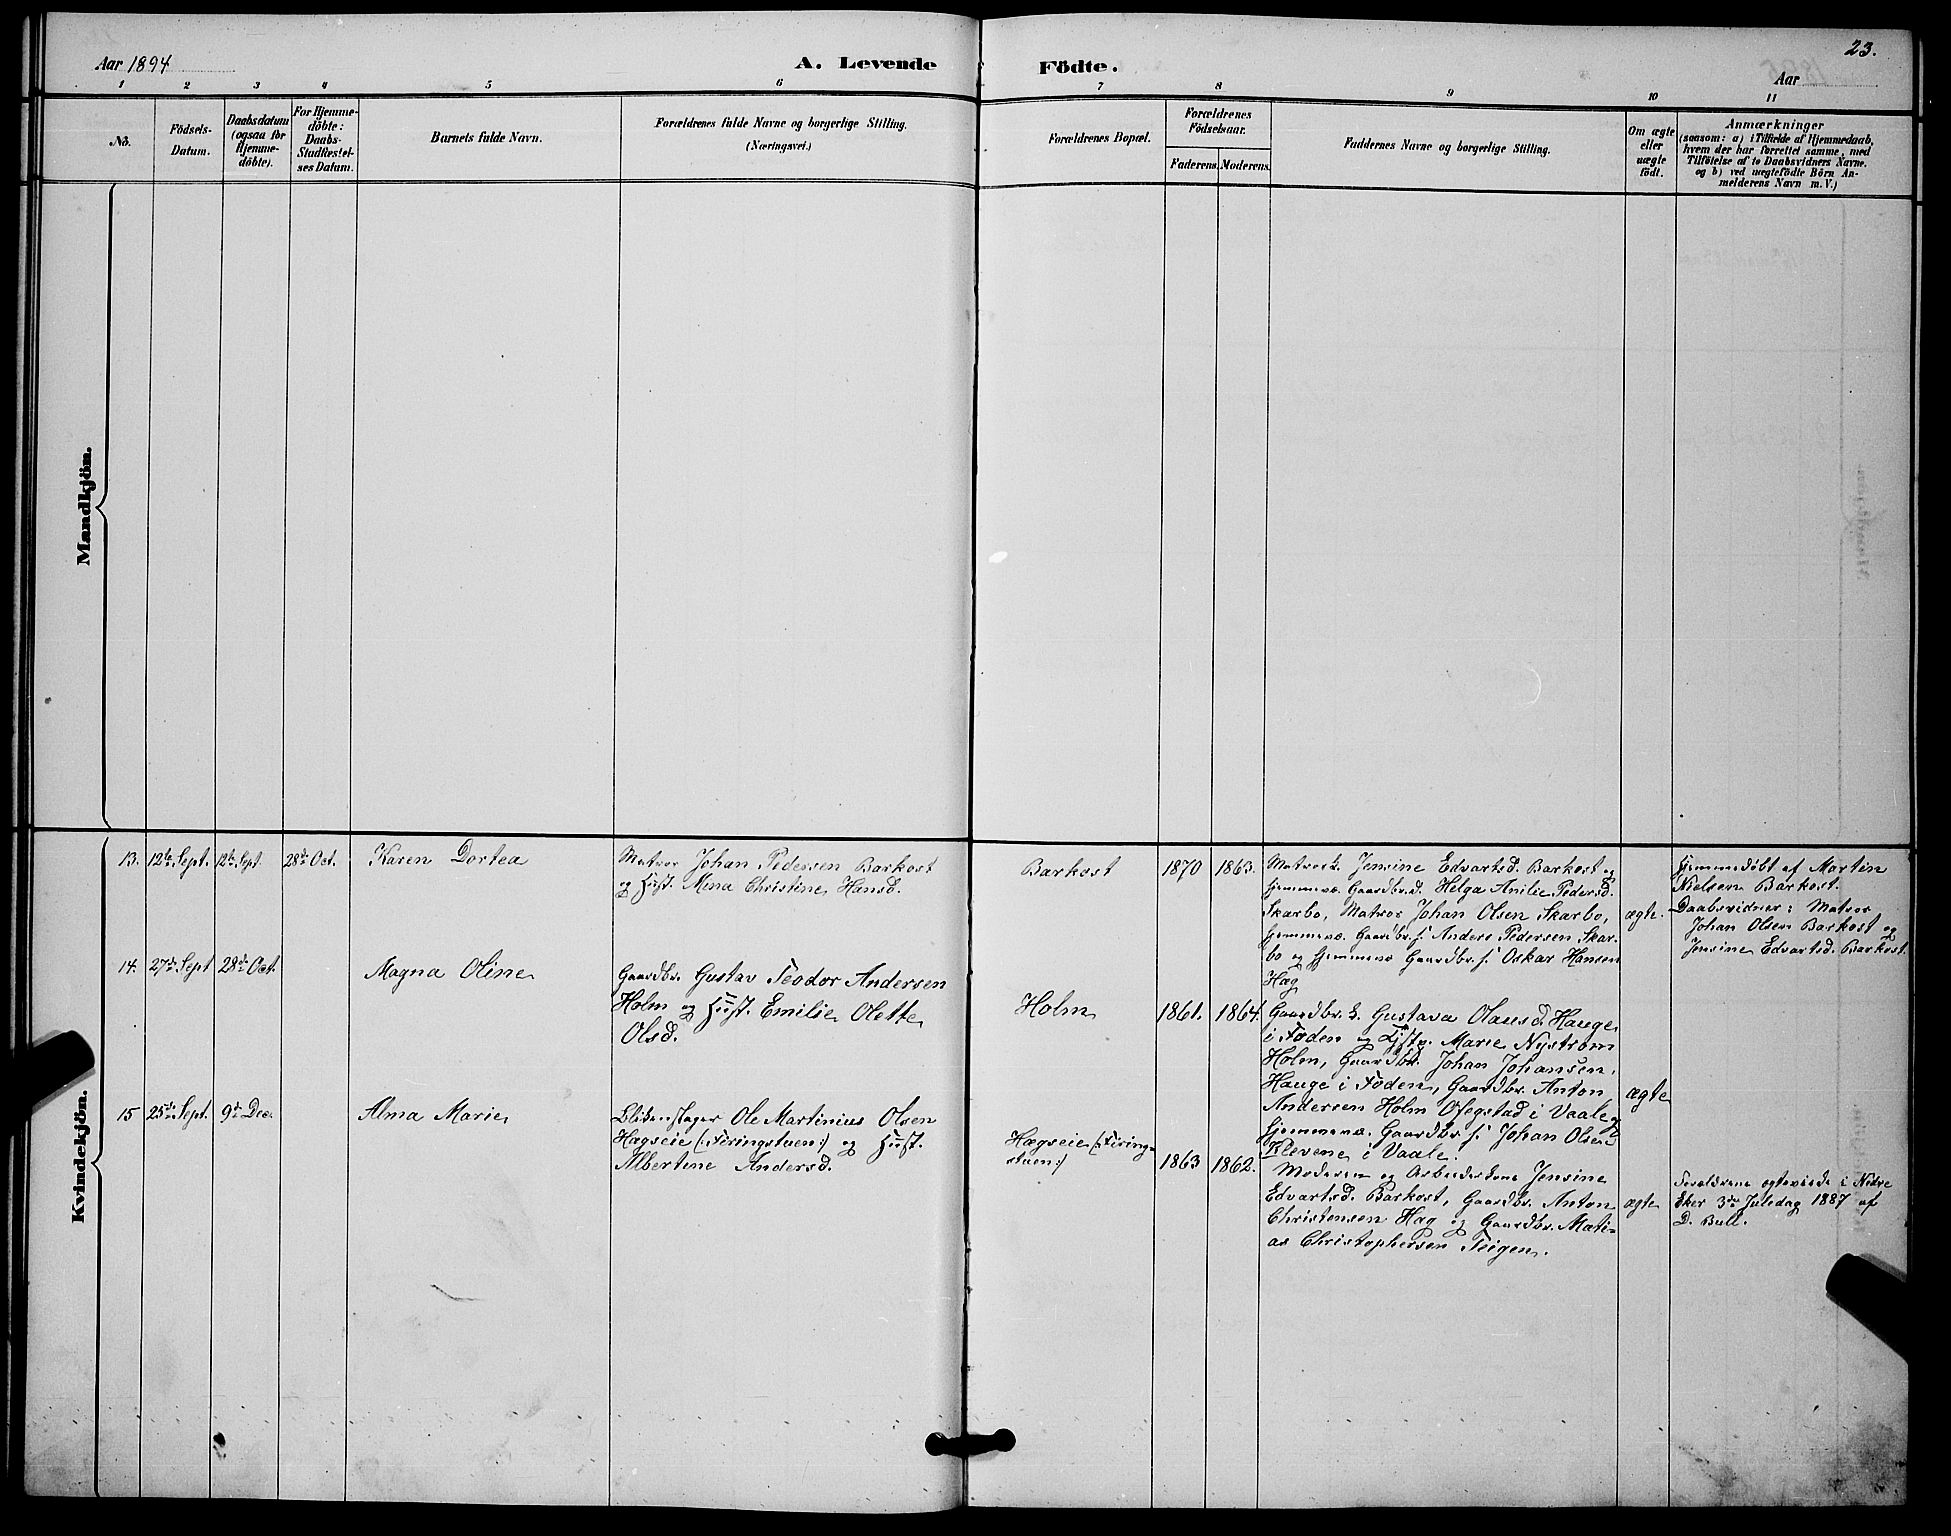 Aar 1894
A. Levende
Födte.
23.
Aar
1 2 3 4 5 6 7 8 9 10 11
No.
Födsels-
Datum.
Daabsdatum
(ogsaa for
Hjemme-
döbte).
For Hjemme-
döbte:
Daabs-
Stadfæstel-
ses Datum.
Barnets fulde Navn.
Forældrenes fulde Navne og borgerlige Stilling.
(Næringsvei.)
Forældrenes Bopæl.
Forældrenes
Födselsaar.
Faderens. Moderens.
Faddernes Navne og borgerlige Stilling.
Om ægte
eller
uægte
födt.
Anmærkninger
(saasom: a) i Tilfælde af Hjemmedaab,
hvem der har forrettet samme, med
Tilföielse af to Daabsvidners Navne.
og b) ved uægtefödte Börn An-
melderens Navn m. V.)
Mandkjön.
Kvindekjön.
13. 12te Sept. 12te Sept. 28de Oct.
Karen Dortea
Matros Johan Pedersen Barkost
og Hust. Mina Christine Hansd.
Barkost
1870 1863.
Matrosk. Jensine Edvartsd. Barkost og
hjemmevæ. Gaardbr.d. Helga Anilie Pedersd.
Skarbo, Matros Johan Olsen Skarbo,
hjemmevæ. Gaardbr. s. Anders Pedersen Skar-
bo og hjemmevæ Gaardbr. s. Oskar Hansen
Hæg
ægte.
Hjemmedöbt af Martin
Nielsen Barkost.
Daabsvidner: Matros
Johan Olsen Barkost og
Jensine Edvartsd. Barkost.
14. 27de Sept 28de Oct.
Magna Oline
Gaardbr. Gustav Teodor Andersen
Holm og Hust. Emilie Olette
Olsd.
Holm
1861. 1864.
Gaardbr.k. Gustava Olausd. Hauge
i Foden og Tjstp. Marie Nyström
Holm, Gaardbr. Johan Johansen
Hauge i Foden, Gaardbr. Anton
Andersen Holm Ofegstad i Vaale og
hjemmevæ. Gaardbr. s. Johan Olsen
Klevene i Vaale.
ægte
15 25de Sept. 9de Dec.
Alma Marie
Blikenslager Ole Martinius Olsen
Hægseie (:Feringstuen:) og Hust.
Albertine Andersd.
Hægseie (:Fering-
stuen:)
1863 1862.
Moderen og Arbeiderkone Jensine
Edvartsd. Barkost, Gaardbr. Anton
Christensen Hag og Gaardbr. Mati-
as Christophersen Teigen.
ægte
Forældrene ægteviede i Nedre
Eker 3die Juledag 1887 af
D. Bull.